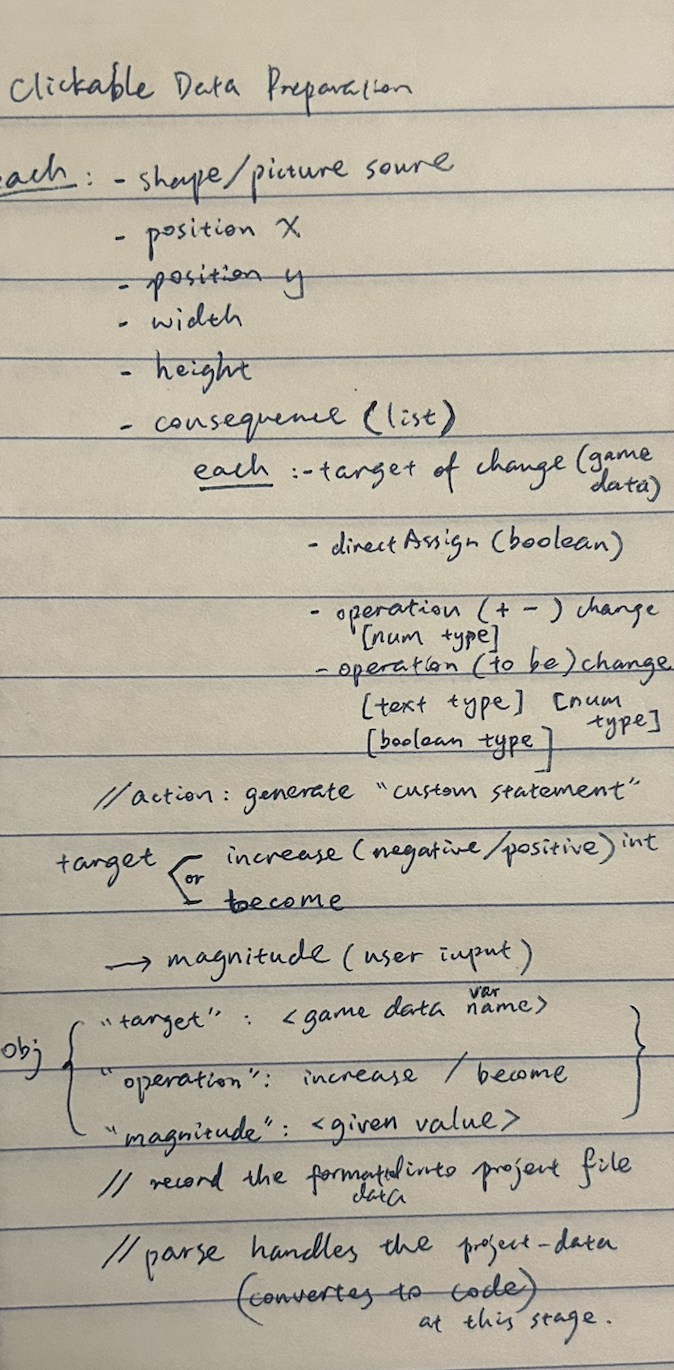 Clickable Data Preparation
each : - shape/picture soure
- position X
- position y
- width
- height
- consequence (list)
each :- target of change (game
data)
- directAssign (boolean)
- operation (+ -) change
[num type]
- operation (to be) change
[text type] [num
type]
[boolean type]
// action : generate "custom statement"
target or increase (negative/positive) int
become
→ magnitude (user input)
var
"target" : <game data name>
obj { "operation": increase / become }
"magnitude": <given value>
// record the formatted into project file
data
// parse handles the project-data
(convertes to code)
at this stage.